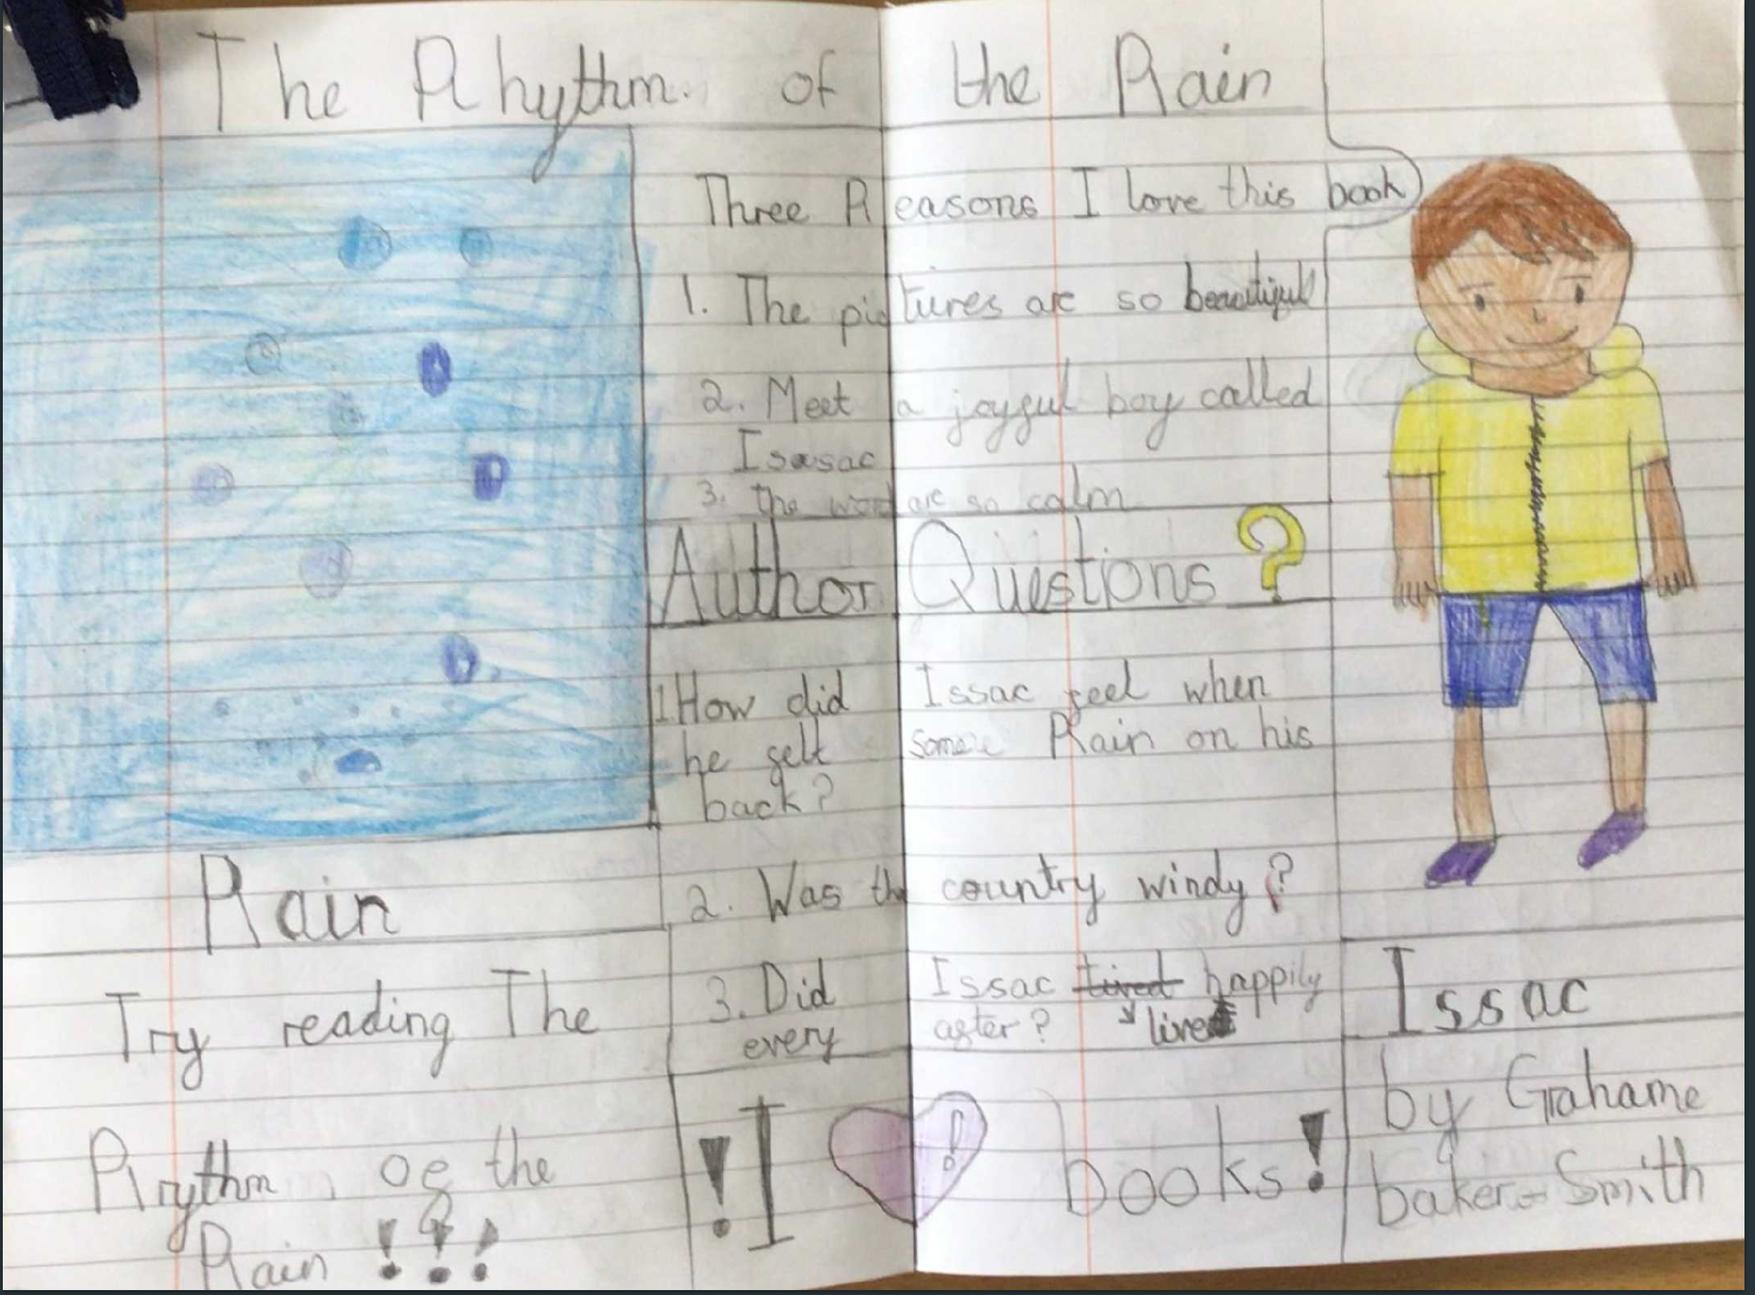 The Rhythm. of the Rain
Three Reasons I love this book
1. The pictures are so beautiful
2. Meet a joyful boy called
Isasac
3. the word are so calm
Author Questions ?
1 How did Issac feel when
he felt some Rain on his
back?
2. Was the country windy?
3. Did Issac tired happily
every after? lived
Rain
Try reading The
Rhythm of the
Rain !!!
! I books!
Issac
by Grahame
baker-Smith